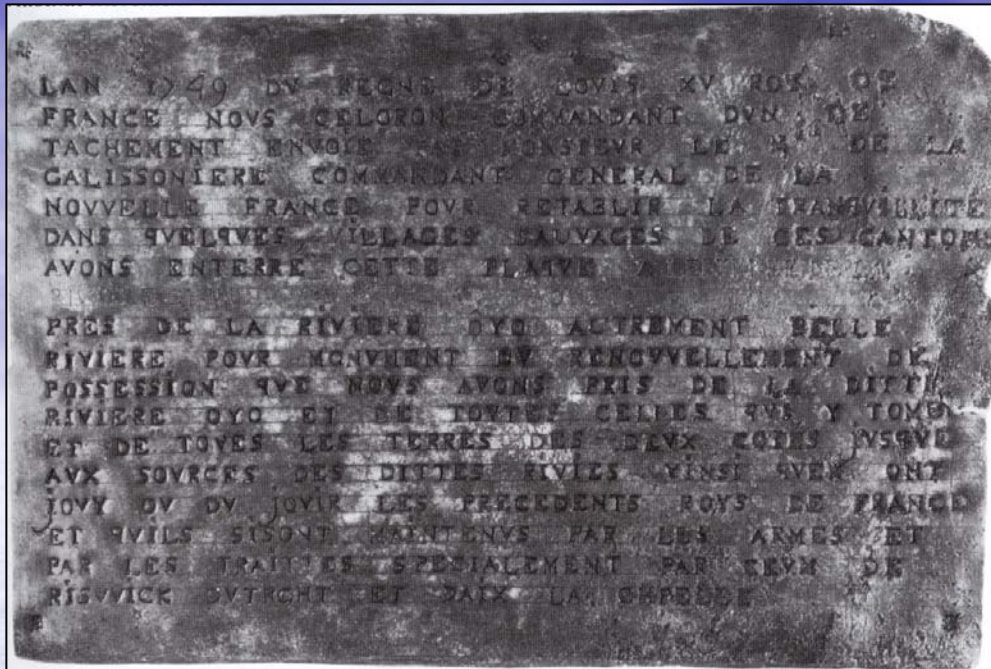 LAN 1749 DV REGNE DE LOVIS XV ROY DE
FRANCE NOVS CELORON COMMANDANT DVN DE
TACHEMENT ENVOIE PAR MONSIEVR LE Mis DE LA
GALISSONIERE COMMANDANT GENERAL DE LA
NOVVELLE FRANCE POVR RETABLIR LA TRANQVILLITE
DANS QVELQVES VILLAGES SAUVAGES DE CES CANTONS
AVONS ENTERRE CETTE PLAQVE
PRES DE LA RIVIERE OYO AUTREMENT BELLE
RIVIERE POVR MONVMENT DV RENOVVELLEMENT DE
POSSESSION QVE NOVS AVONS PRIS DE LA DITTE
RIVIERE OYO ET DE TOVTES CELLES QVI Y TOMBE
ET DE TOVES LES TERRES DES DEVX COTES JVSQVE
AVX SOVRCES DES DITTES RIVIES VINSI QVEN ONT
JOVY OV DV JOVIR LES PRECEDENTS ROYS DE FRANCE
ET QVILS SISONT MAINTENVS PAR LES ARMES ET
PAR LES TRAITTES SPECIALEMENT PAR CEVX DE
RISVVICK DVTRCHT ET DAIX LA CHPELLE